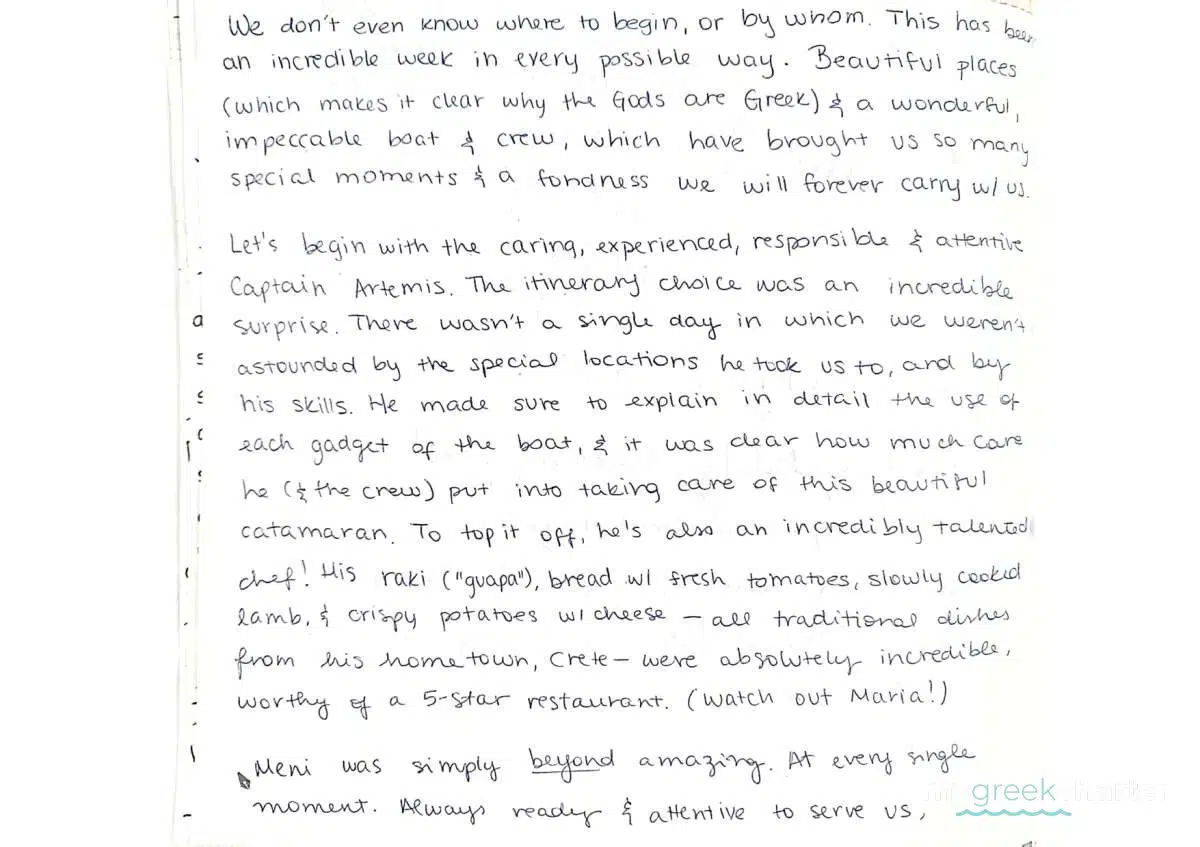 We don't even know where to begin, or by whom. This has been
an incredible week in every possible way. Beautiful places
(which makes it clear why the Gods are Greek) & a wonderful,
impeccable boat & crew, which have brought us so many
special moments & a fondness we will forever carry w/ us.
Let's begin with the caring, experienced, responsible & attentive
Captain Artemis. The itinerary choice was an incredible
surprise. There wasn't a single day in which we weren't
astounded by the special locations he took us to, and by
his skills. He made sure to explain in detail the use of
each gadget of the boat, & it was clear how much care
he (& the crew) put into taking care of this beautiful
catamaran. To top it off, he's also an incredibly talented
chef! His raki ("guapa"), bread w/ fresh tomatoes, slowly cooked
lamb, & crispy potatoes w/ cheese — all traditional dishes
from his hometown, Crete — were absolutely incredible,
worthy of a 5-star restaurant. (Watch out Maria!)
Meni was simply beyond amazing. At every single
moment. Always ready & attentive to serve us,
greek